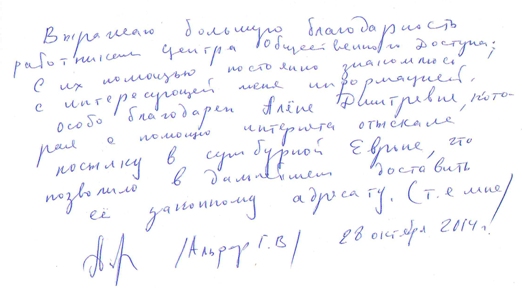 Выражаю большую благодарность
работникам Центра Общественного Доступа;
С их помощью постоянно знакомлюсь
с интересующей меня информацией.
особо благодарен Алёне Дмитревне, кото-
рая с помощью интернета отыскала
посылку в сумбурной Европе, что
позволило в дальнейшем доставить
её законному адресату. (т.е мне)
/Альфер Г.В/ 28 октября 2014г.